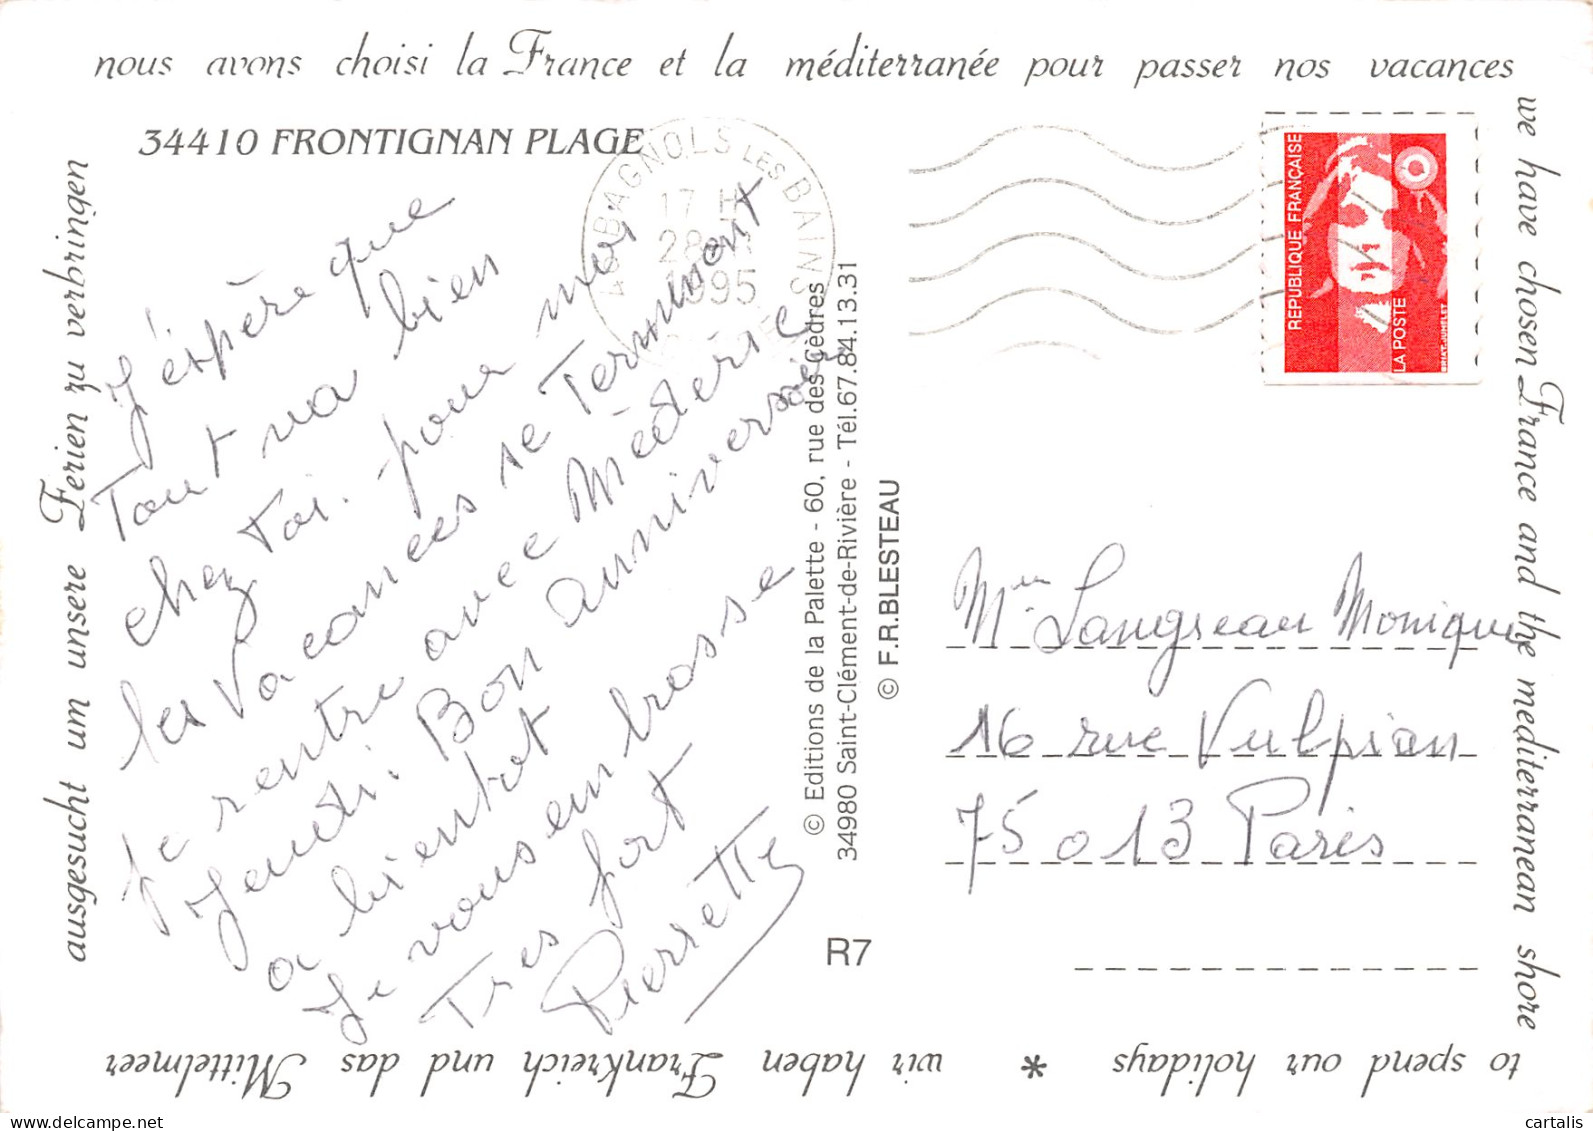 nous avons choisi la France et la méditerranée pour passer nos vacances
we have chosen France and the mediterranean shore
to spend our holidays * wir haben Frankreich und das Mittelmeer
ausgesucht um unsere Ferien zu verbringen
34410 FRONTIGNAN PLAGE
BAGNOLS LES BAINS
17 H
28
1995
REPUBLIQUE FRANÇAISE
LA POSTE
BRIAT-JUMELET
J'éspère que
Tout va bien
chez toi. pour moi
les Vacances se Terminent
je rentre avec Médéric
Jeudi. Bon anniversaire
a bientot
Je vous embrasse
Tres fort
Pierrette
© Editions de la Palette - 60, rue des Cèdres
34980 Saint-Clément-de-Rivière - Tél.67.84.13.31
© F.R.BLESTEAU
R7
Langreau Monique
16 rue Vulpian
75013 Paris
delcampe.net
cartalis